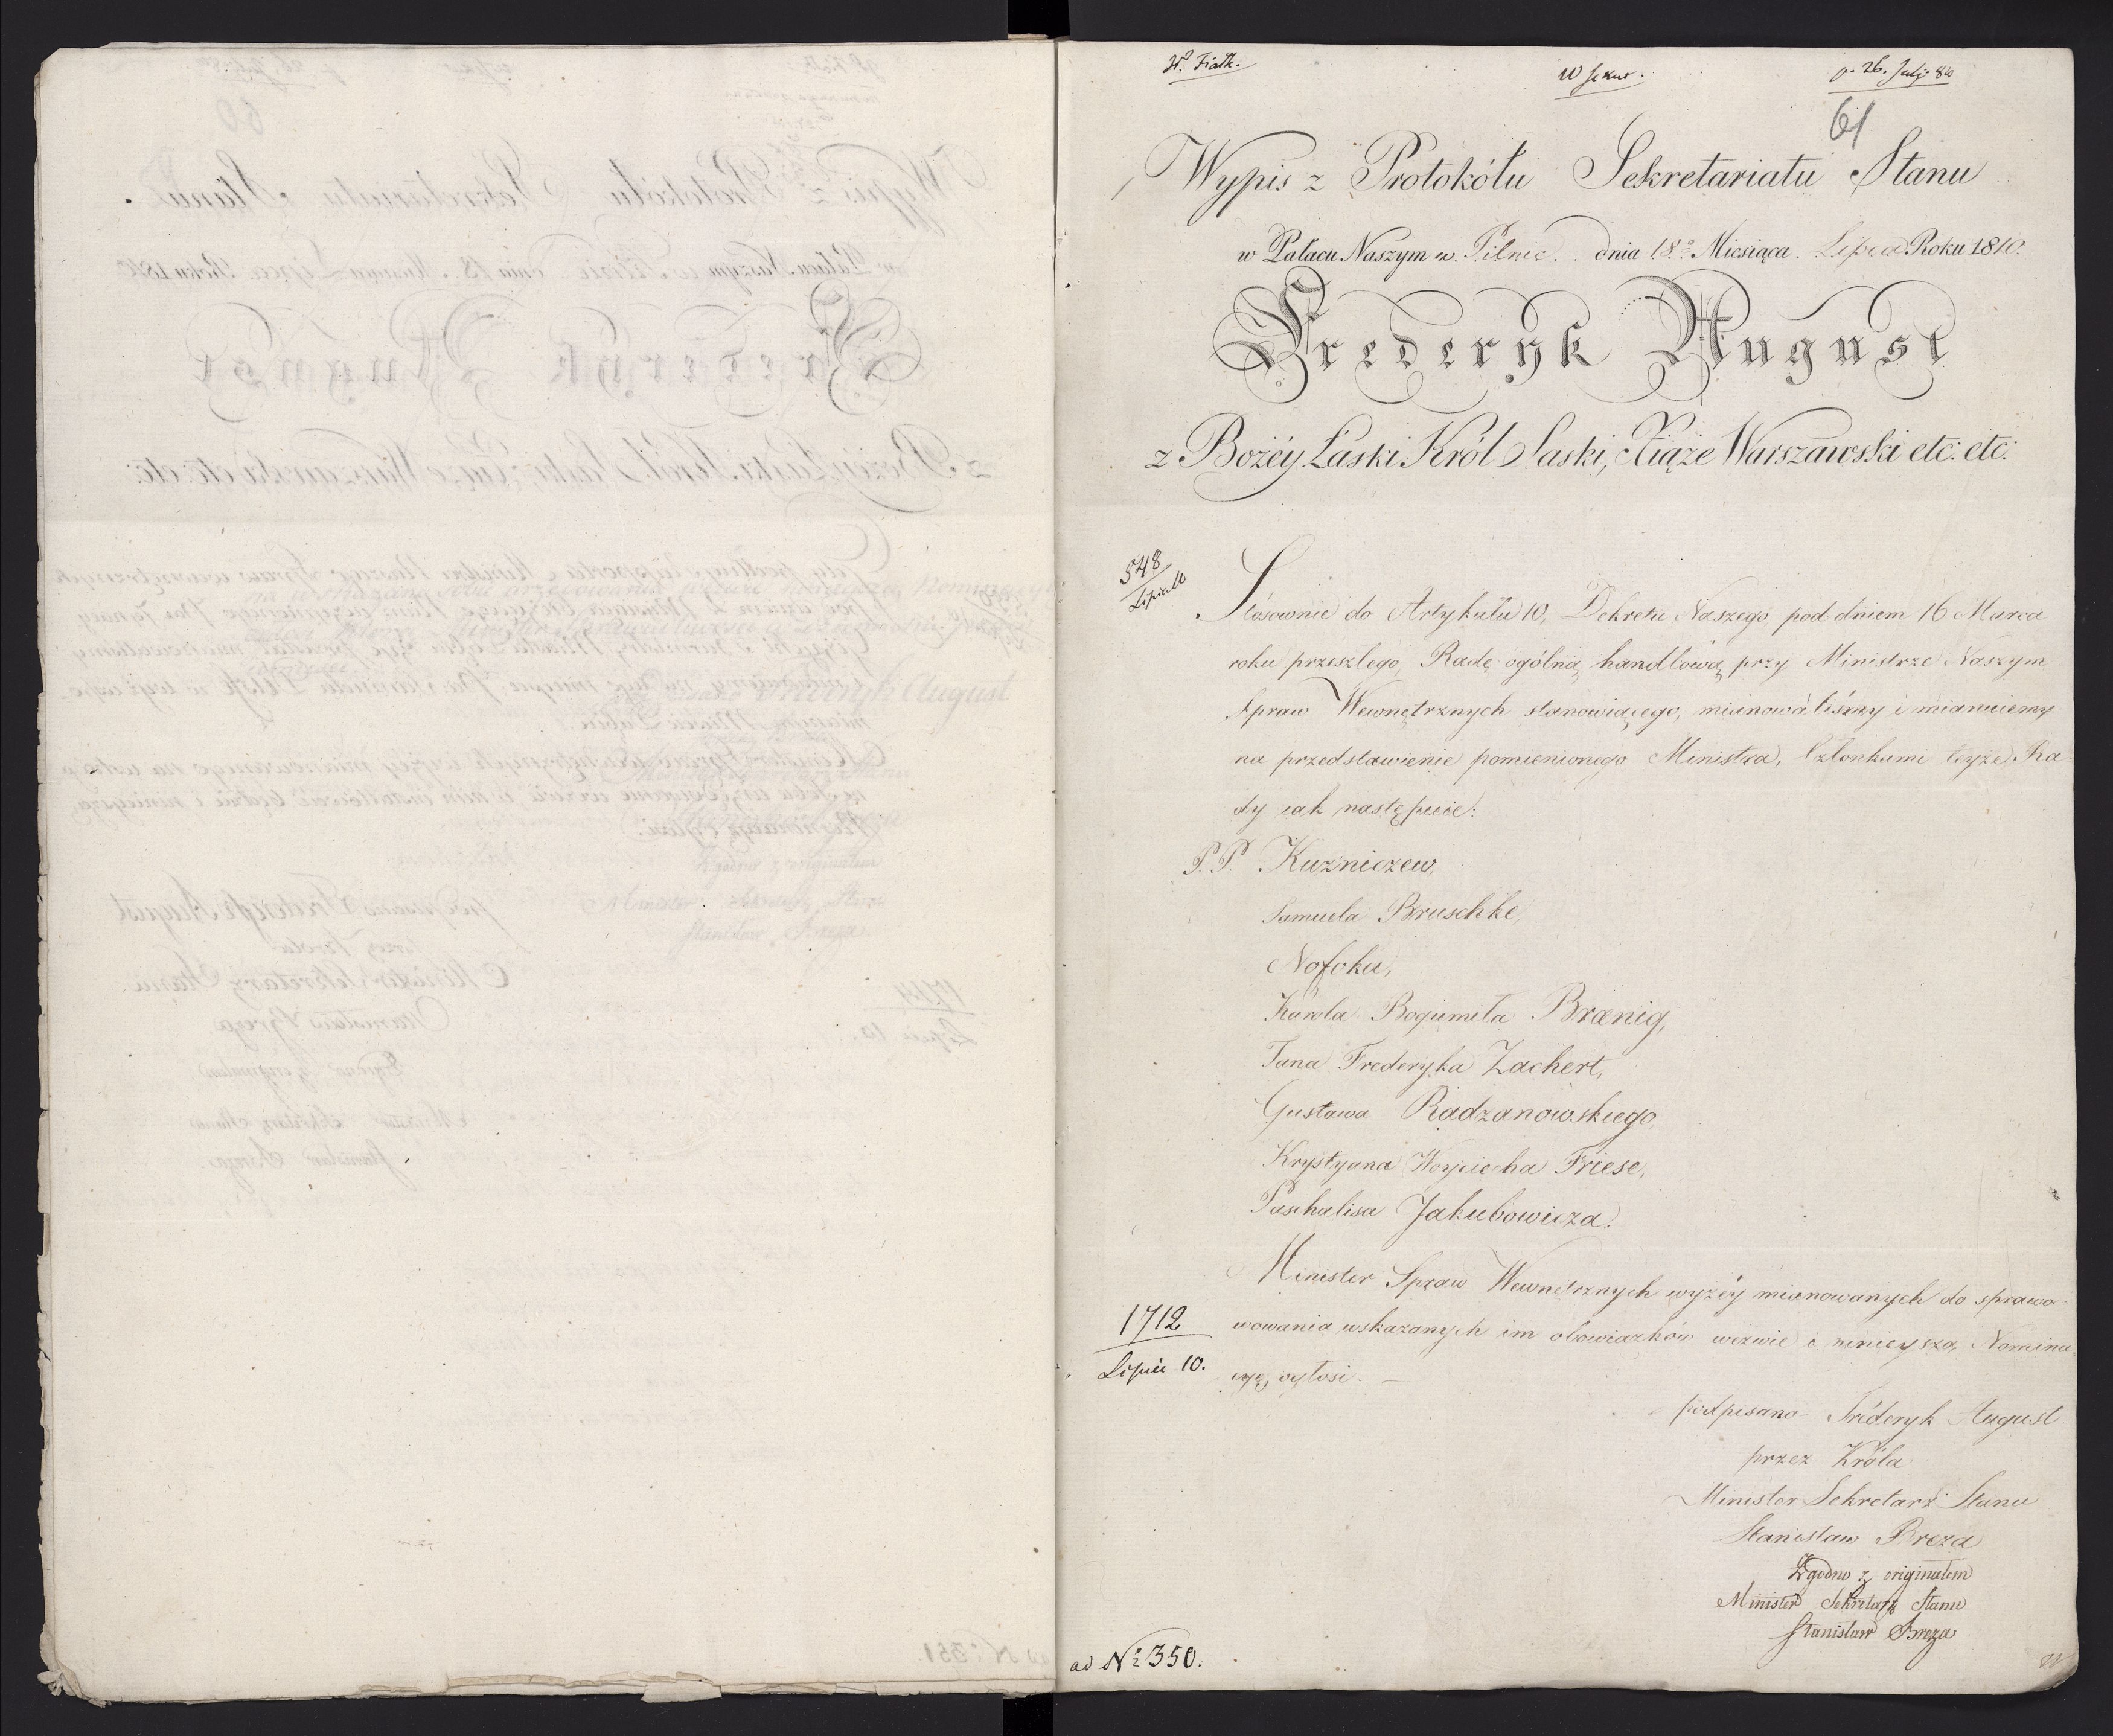 Wypis z Protokółu Sekretariatu Stanu
w Pałacu Naszym w. Pilnic. dnia 18.º Miesiąca. Lipca Roku 1810.
61
Frederyk August
z Bożéy Łaski Król Saski, Xiąże Warszawski etc: etc:
548
Stósownie do Artykułu 10, Dekretu Naszego pod dniem 16 Marca
roku przeszłego, Radę ogólną handlową przy Ministrze Naszym
Spraw Wewnętrznych stanowiącego, mianowaliśmy i mianuiemy
na przedstawienie pomienionego Ministra, Członkami teyże Ra
dy iak następuie:
P.P. Kuzniczew,
Samuela Bruschke,
Nofoka,
Karola Bogumiła Brænig,
Jana Frederyka Zachert,
Gustawa Radzanowskiego,
Krystyana Woyciecha Friese,
Paschalisa Jakubowicza.
Minister Spraw Wewnetrznych wyżéy mianowanych do sprawo
wowania wskazanych im obowiazków wezwie i ninieysza, Nomina
cyę, ogłosi. —
1712
Lipca 10.
podpisano Fréderyk August
przez Króla
Minister Sekretarz Stanu
Stanisław Breza
Zgodno z originałem
Minister Sekretarz Stanu
Stanisław Breza
ad Nº 350.